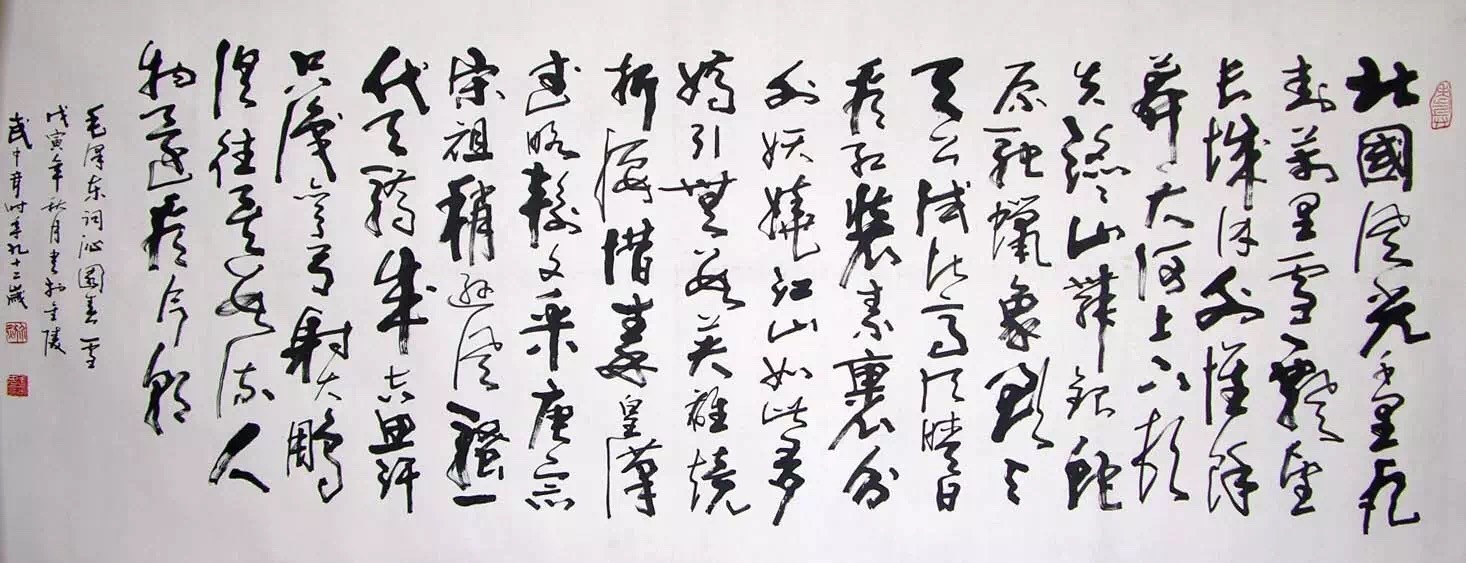 北國風光千里冰
封萬里雪飄望
長城内外惟餘
莽々大河上下頓
失滔々山舞銀蛇
原馳蠟象欲與
天公試比高須晴日
看紅裝素裹分
外妖嬈江山如此多
嬌引無數英雄競
折腰惜秦皇漢
武略輸文采唐宗
宋祖稍遜風騷一
代天驕成吉思汗
只識彎弓射大鵰
俱往矣數風流人
物還看今朝
毛澤东詞沁園春雪
戊寅年秋月書於金陵
武中奇时年九十二歲